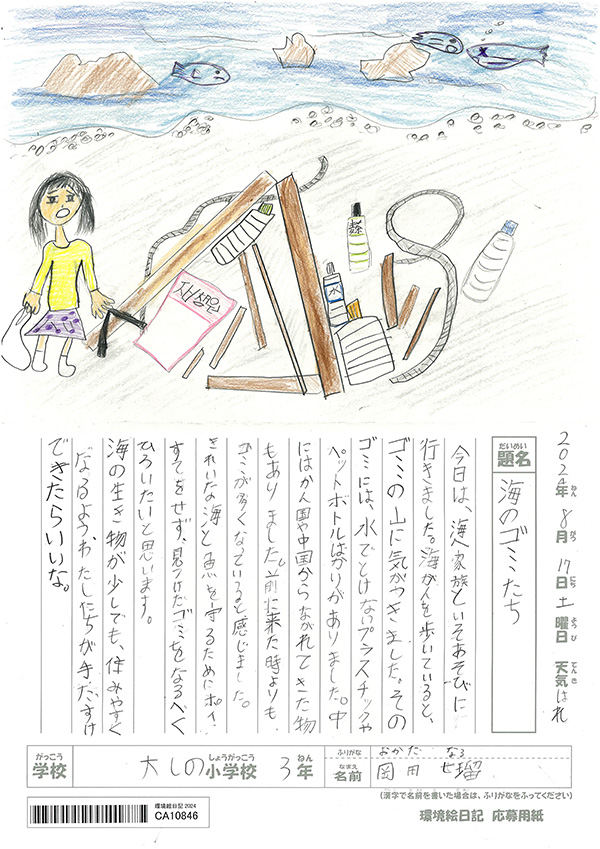 茶
水
2024年 8月 17日 土曜日 天気 はれ
ねん がつ にち ようび てんき
だいめい
題名 海のゴミたち
今日は、海へ家族といそあそびに
行きました。海がんを歩いていると、
ゴミの山に気がつきました。その
ゴミには、水でとけないプラスチックや
ペットボトルばかりがありました。中
にはかん国や中国からながれてきた物
もありました。前に来た時よりも
ゴミが多くなっていると感じました。
きれいな海と魚を守るためにポイ
すてをせず、見つけたゴミをなるべく
ひろいたいと思います。
海の生き物が少しでも、住みやすく
なるようわたしたちが手だすけ
できたらいいな。
がっこう しょうがっこう ねん
学校 大しの小学校 3年
ふりがな おかだ なる
なまえ
名前 岡田 七瑠
(漢字で名前を書いた場合は、ふりがなをふってください)
環境絵日記 応募用紙
環境絵日記 2024
CA10846